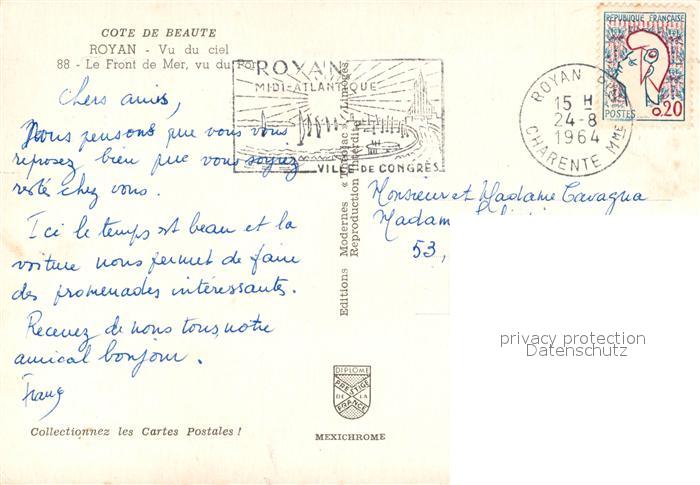 COTE DE BEAUTE
ROYAN - Vu du ciel
88 - Le Front de Mer, vu du For
Chers amis,
Nous pensons que vous vous
reposez bien que vous soyiez
restés chez vous.
Ici le temps est beau et la
voiture nous permet de faire
des promenades intéressantes.
Recevez de nous tous, notre
amical bonjour.
Collectionnez les Cartes Postales !
ROYAN
MIDI-ATLANTIQUE
VILLE DE CONGRÈS
Editions Modernes « Théojac », Limoges
Reproduction Interdite
DIPLOME
PRESTIGE
DE LA
FRANCE
MEXICHROME
REPUBLIQUE FRANÇAISE
POSTES
0,20
ROYAN
15 H
24-8
1964
CHARENTE MME
Monsieur et Madame Cavagna
Madam
53,
privacy protection
Datenschutz